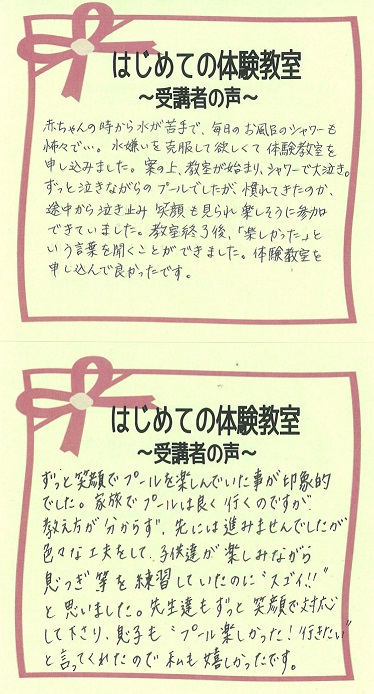 はじめての体験教室
～受講者の声～
赤ちゃんの時から水が苦手で、毎日のお風呂のシャワーも
怖々でい。水嫌いを克服して欲しくて体験教室を
申し込みました。案の上、教室が始まり、シャワーで大泣き。
ずっと泣きながらのプールでしたが、慣れてきたのか、
途中から泣き止み笑顔も見られ楽しそうに参加
できていました。教室終了後、「楽しかった」と
いう言葉を聞くことができました。体験教室を
申し込んで良かったです。
はじめての体験教室
～受講者の声～
ずっと笑顔でプールを楽しんでいた事が印象的
でした。家族でプールは良く行くのですが、
教え方が分からず、先には進みませんでしたが
色々な工夫をして、子供達が楽しみながら
息つぎ等を練習していたのに"スゴイ!!"
と思いました。先生達もずっと笑顔で対応
して下さり、息子も"プール楽しかった!行きたい"
と言ってくれたので私も嬉しかったです。